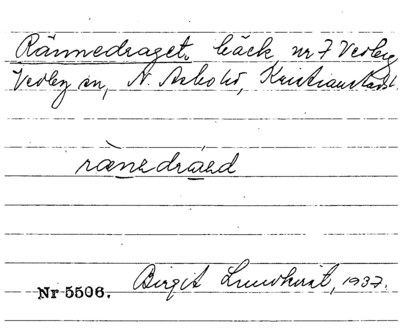 Rännedraget, bäck nr 7 Verley
Verley sn, N. Asbo hd, Kristianstads l.
rànedráed
Nr 5506. Birgit Lundkvist, 1937.